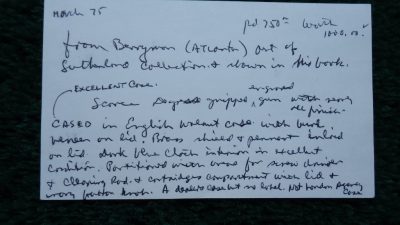 March 75
pd 750= Worth
1000.00
from Berryman (Atlanta) out of
Sutherland Collection & shown in his book.
EXCELLENT CASE.
Scarce engraved gun with
CASED in English walnut case with burl
veneer on lid. Brass shield & pennant inlaid
on lid. dark blue cloth interior in excellent
condition. Partitioned with areas for screw driver
& Cleaning Rod. & cartridges compartment with lid &
ivory button knob. A dealers case but no label. Not London Agency
case